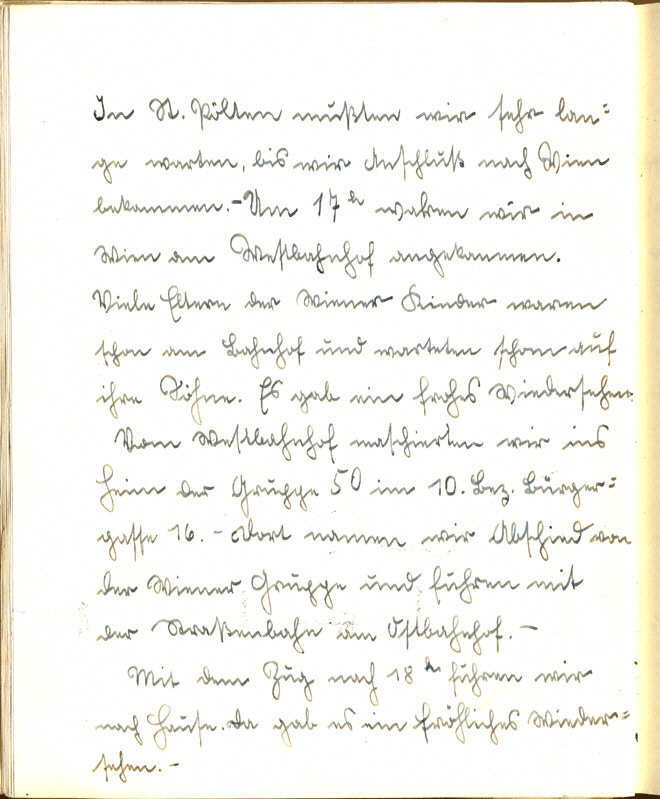 In St. Pölten mußten wir sehr lan=
ge warten, bis wir Anschluß nach Wien
bekommen.- Um 17 h waren wir in
Wien am Westbahnhof angekommen.
Viele Eltern der Wiener Kinder waren
schon am Bahnhof und warteten schon auf
ihre Söhne. Es gab ein frohes Wiedersehen.
Vom Westbahnhof maschierten wir ins
Heim der Gruppe 50 im 10. Bez. Bürger=
gasse 16. - Dort namen wir Abschied von
der Wiener Gruppe und fuhren mit
der Straßenbahn am Ostbahnhof. -
Mit dem Zug nach 18 h fuhren wir
nach Hause. Da gab es ein fröhliches Wieder=
sehen. -